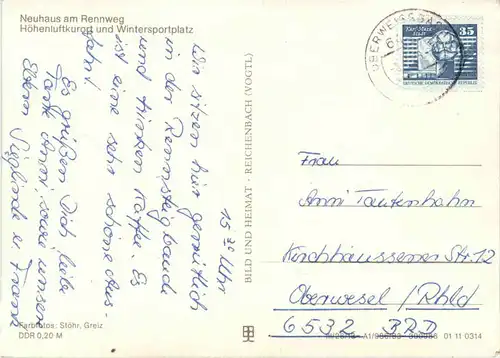 Neuhaus am Rennweg
Höhenluftkurort und Wintersportplatz
15 30 Uhr
Wir sitzen hier gemütlich
in der Rennsteigbaude
und trinken Kaffee. Es
ist eine sehr schöne Aus-
fahrt.
Es grüßen Dich, liebe
Tante Anni, sowie unsere
Eltern Sieglinde u. Frank
Farbfotos: Stöhr, Greiz
DDR 0,20 M
BILD UND HEIMAT · REICHENBACH (VOGTL)
OBERWEISSBACH
Karl-Marx-
Stadt
35
DEUTSCHE DEMOKRATISCHE REPUBLIK
Frau
Anni Tautenhahn
Kirchhäussener Str. 12
Oberwesel / Rhld
6532 BRD
01 11 0314